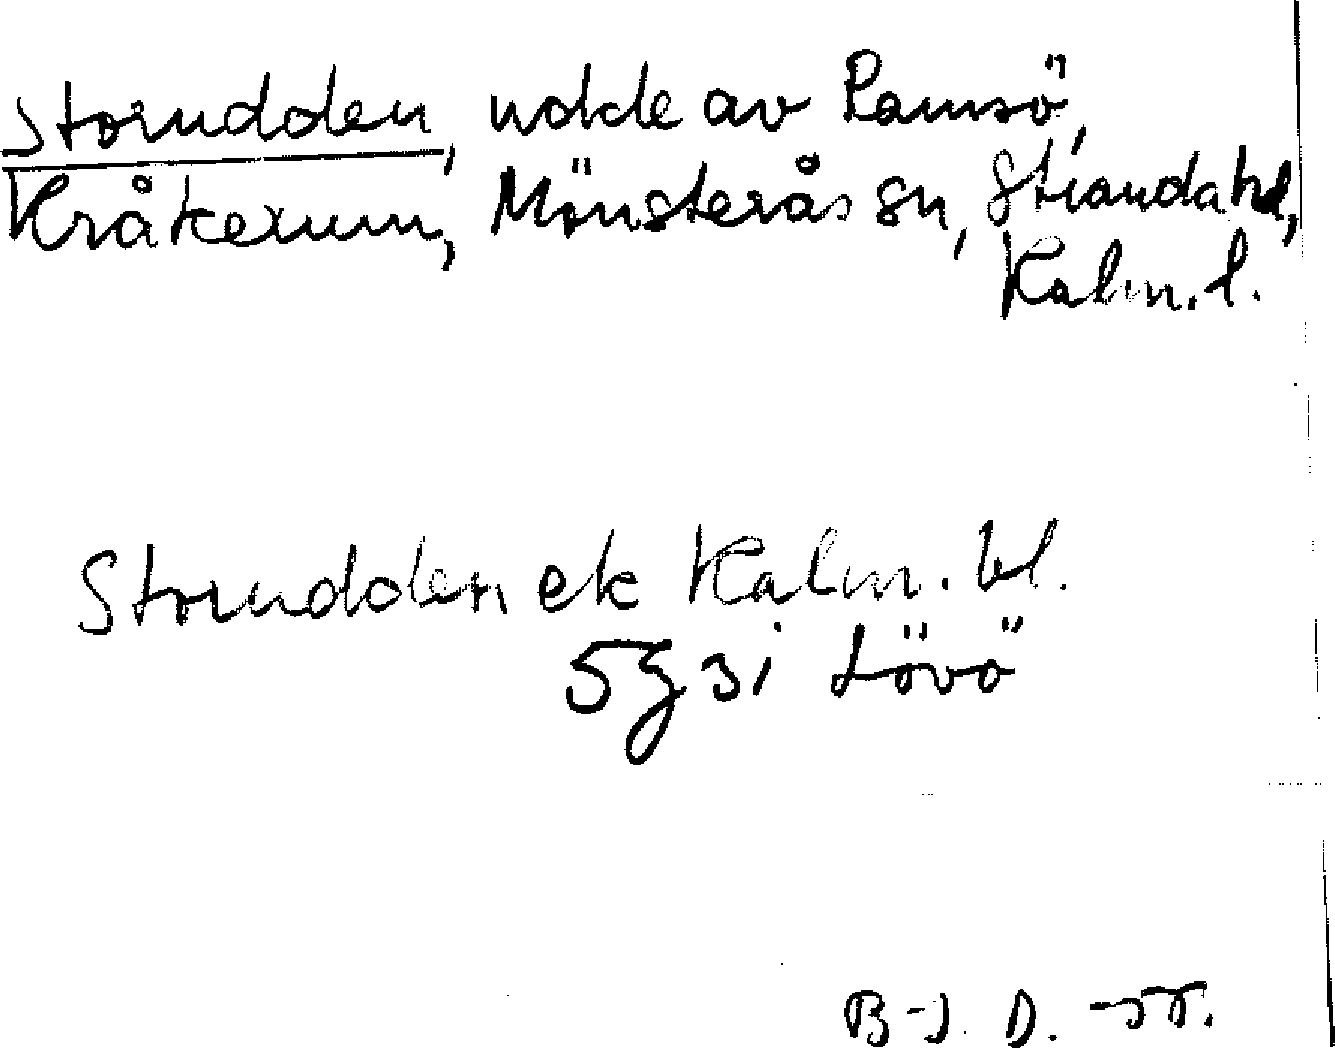 Storudden, udde av Ramsö,
Kråkerum, Mönsterås sn, Stranda hd,
Kalm. l.
Storudden ek Kalm. bl.
5g 3i Lövö
B-J. D. -55.